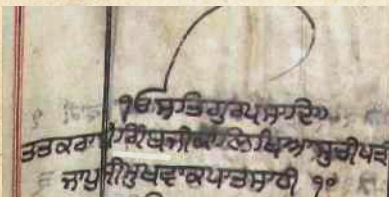 ੴ ਸਤਿਗੁਰਪ੍ਰਸਾਦਿ॥
ਤਤਕਰਾ ਸ੍ਰੀ ਗ੍ਰਿੰਥ ਜੀ ਕਾ ਲਿਖਿਆ ਸੂਚੀਪਤ੍ਰ
ਜਾਪੁ ਸ੍ਰੀ ਮੁਖਵਾਕ ਪਾਤਸਾਹੀ ੧੦